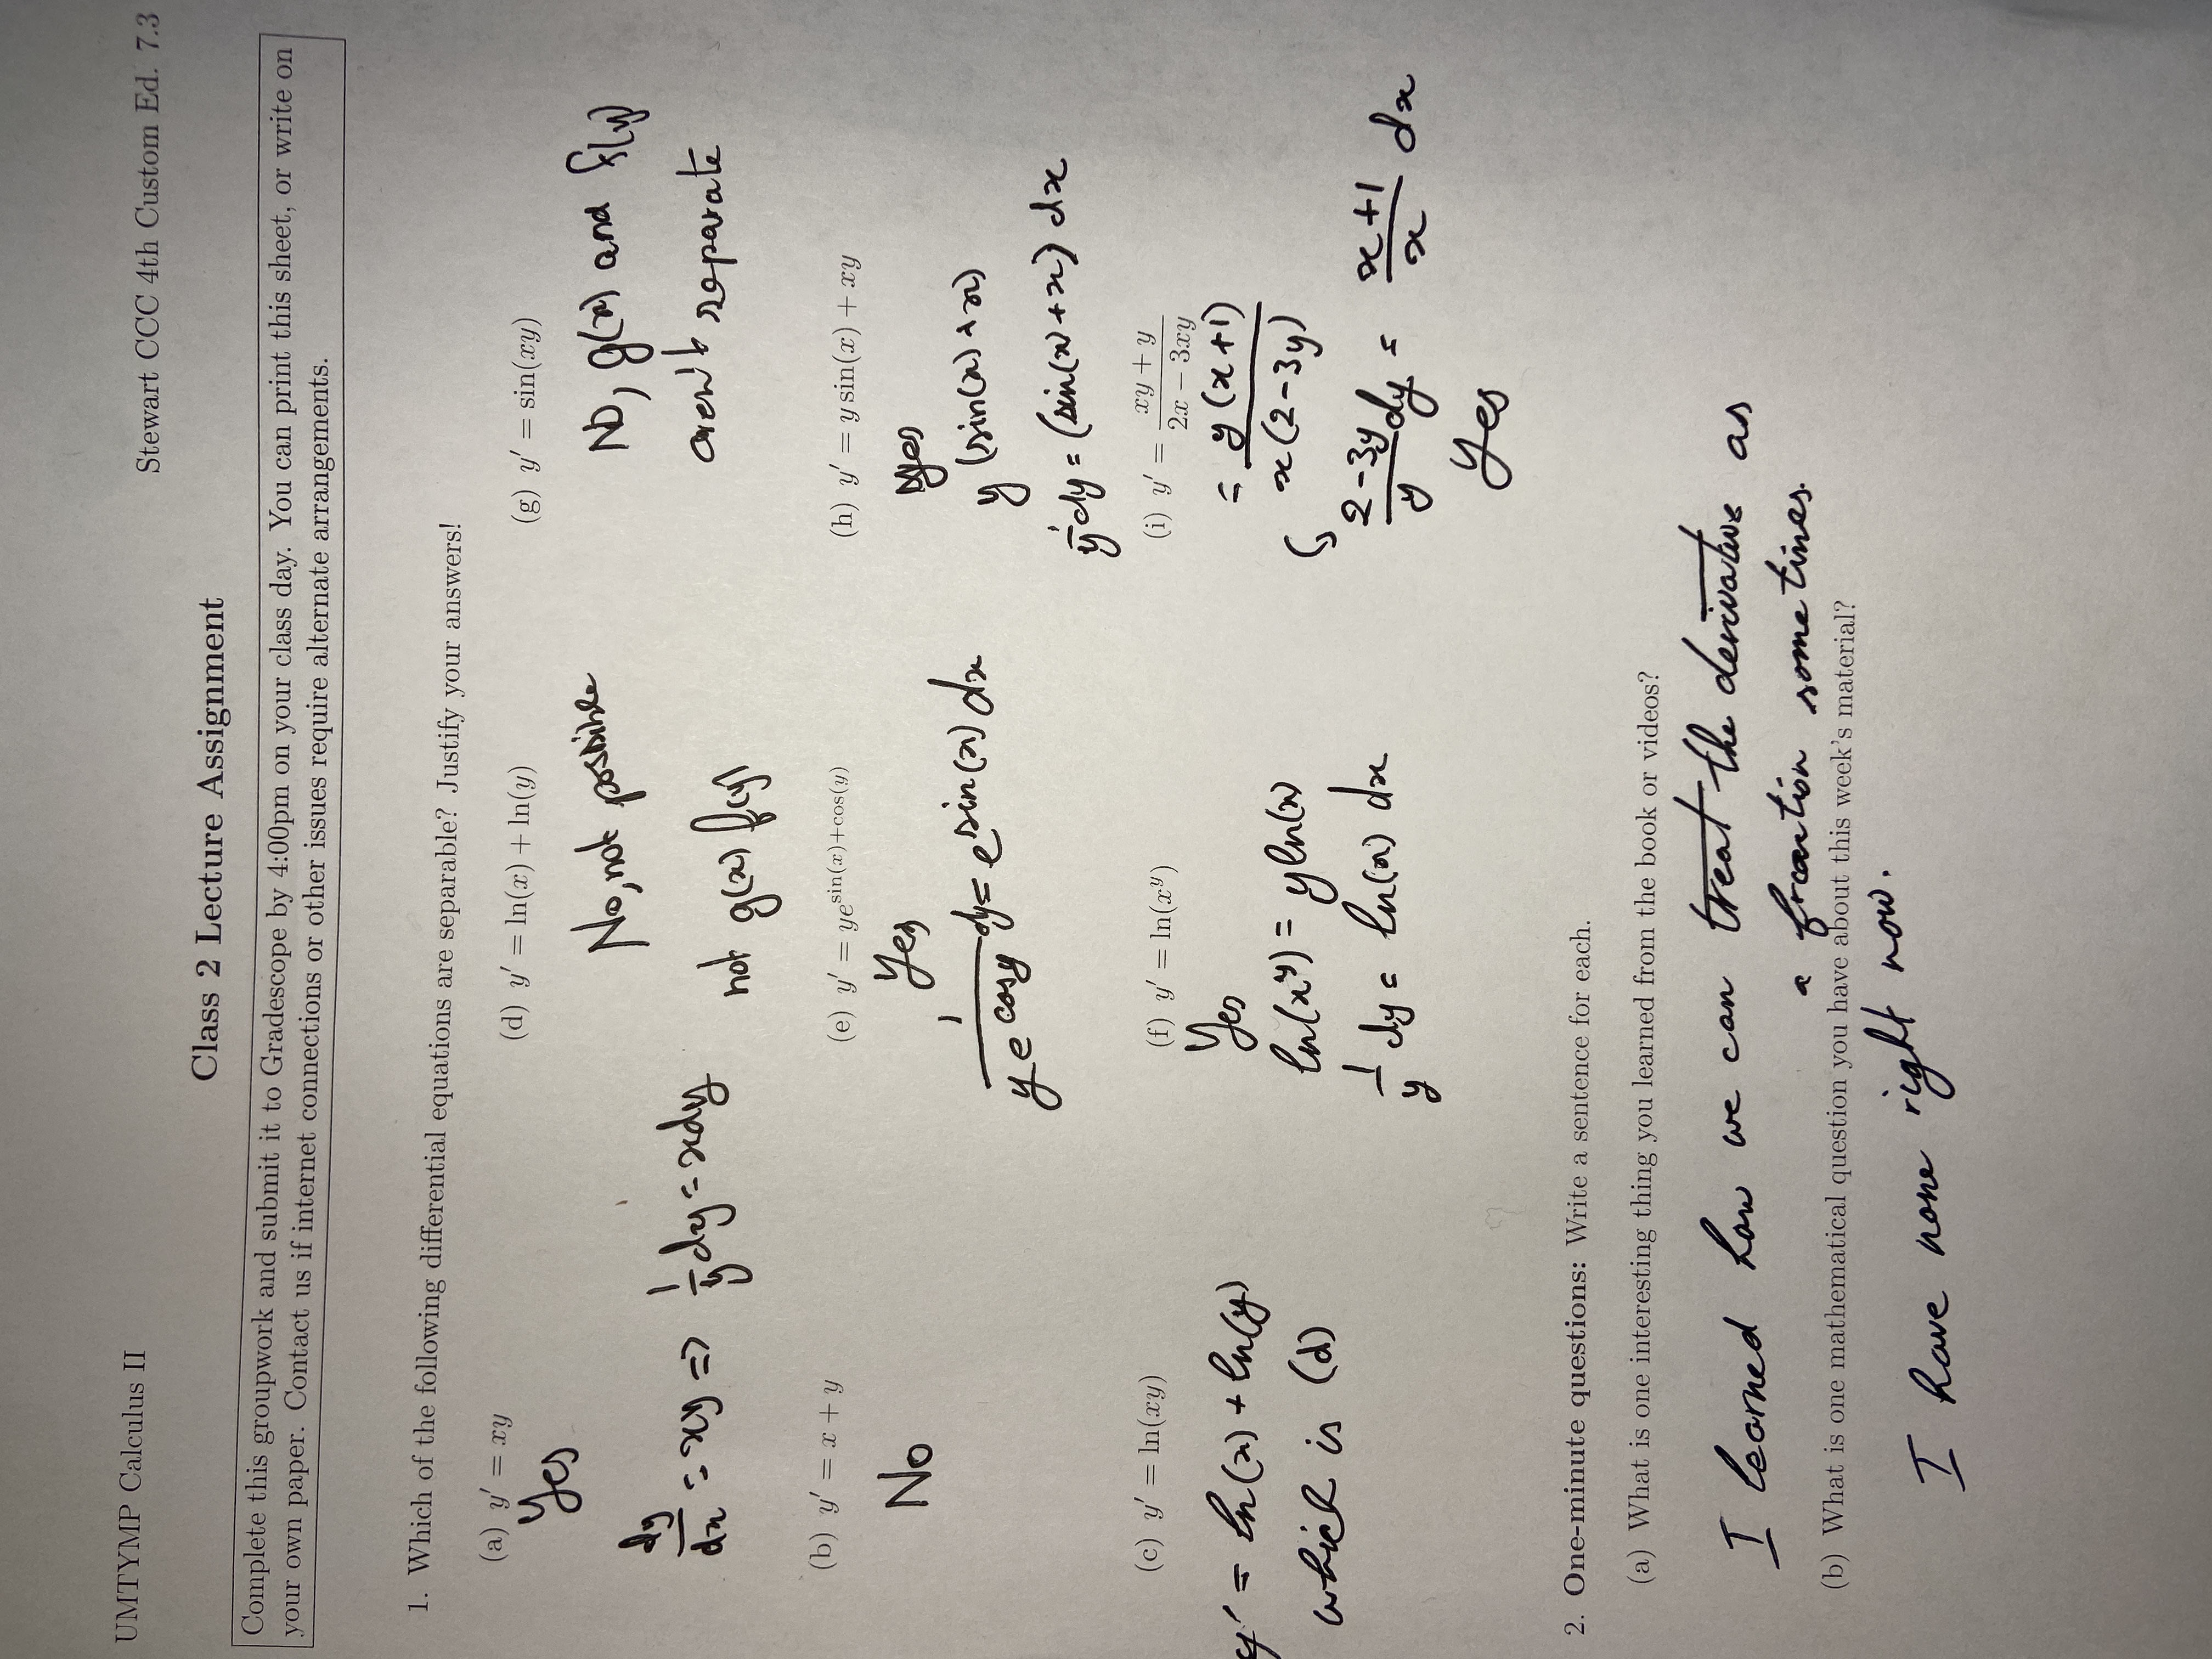 UMTYMP Calculus II
Stewart CCC 4th Custom Ed. 7.3
Class 2 Lecture Assignment
Complete this groupwork and submit it to Gradescope by 4:00pm on your class day. You can print this sheet, or write on
your own paper. Contact us if internet connections or other issues require alternate arrangements.
1. Which of the following differential equations are separable? Justify your answers!
(a) y′ = xy
Yes
dy/dx = xy => 1/y dy = xdy
(b) y′ = x + y
No
(c) y′ = ln(xy)
y' = ln(x) + ln(y)
which is (d)
(d) y′ = ln(x) + ln(y)
No, not possible
not g(x) f(y)
(e) y′ = ye^(sin(x)+cos(y))
Yes
1/(y e^cosy) dy = e^sin(x) dx
(f) y′ = ln(x^y)
Yes
ln(x^y) = yln(x)
1/y dy = ln(x) dx
(g) y′ = sin(xy)
NO, g(x) and f(y)
aren't separate
(h) y′ = y sin(x) + xy
yes
y (sin(x) + x)
1/y dy = (sin(x) + x) dx
(i) y′ = (xy + y)/(2x − 3xy)
= y(x+1)/x(2-3y)
(2-3y)/y dy = (x+1)/x dx
Yes
2. One-minute questions: Write a sentence for each.
(a) What is one interesting thing you learned from the book or videos?
I learned how we can treat the derivative as
a fraction sometimes.
(b) What is one mathematical question you have about this week's material?
I have none right now.